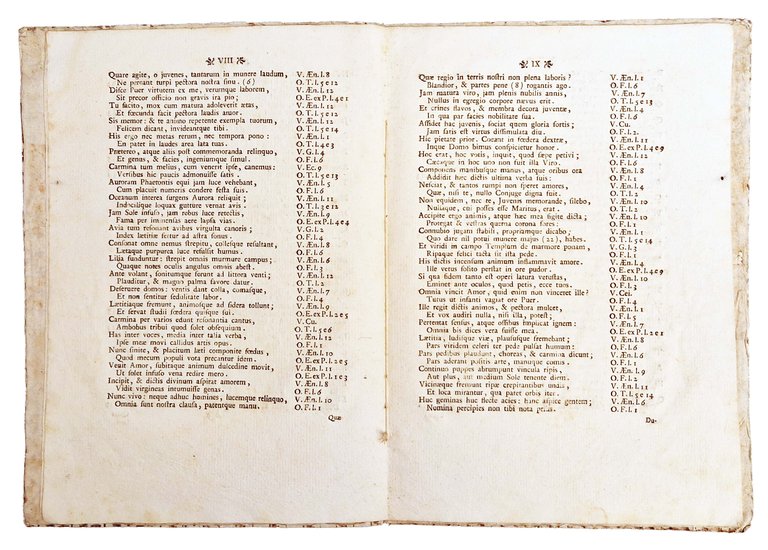 VIII
Quare agite, o juvenes, tantarum in munere laudum, V. Æn. l. 8
Ne pereant turpi pectora nostra sinu. (6) O. T. l. 5 e 12
Disce Puer virtutem ex me, verumque laborem, V. Æn. l. 12
Sit precor officio non gravis ira pio; O. E. ex P. l. 4 e 1
Tu facito, mox cum matura adoleverit ætas, V. Æn. l. 12
Et fœcunda facit pectora laudis amor. O. T. l. 5 e 12
Sis memor: & te animo repetente exempla tuorum, V. Æn. l. 12
Felicem dicant, invideantque tibi. O. T. l. 5 e 14
His ego nec metas rerum, nec tempora pono: V. Æn. l. 1
En patet in laudes area lata tuas. O. T. l. 4 e 3
Prætereo, atque aliis post commemoranda relinquo, V. G. l. 4
Et genus, & facies, ingeniumque simul. O. F. l. 6
Carmina tum melius, cum venerit ipse, canemus: V. Ec. 9
Versibus hic paucis admonuisse satis. O. T. l. 5 e 13
Auroram Phaetontis equi jam luce vehebant, V. Æn. l. 5
Cum placuit numeris condere festa suis. O. F. l. 6
Oceanum interea surgens Aurora reliquit; V. Æn. l. 11
Indocilique loquax gutture vernat avis. O. T. l. 3 e 12
Jam Sole infuso, jam rebus luce retectis, V. Æn. l. 9
Fama per immensas aere lapsa vias. O. E. ex P. l. 4 e 4
Avia tum resonant avibus virgulta canoris; V. G. l. 2
Index lætitiæ fertur ad astra sonus. O. F. l. 4
Consonat omne nemus strepitu, collesque resultant, V. Æn. l. 8
Lætaque purpurea luce refulsit humus. O. F. l. 6
Lilia funduntur: strepit omnis murmure campus; V. Æn. l. 6
Quaque notes oculis angulus omnis abest. O. F. l. 3
Ante volant, sonitumque ferunt ad littora venti; V. Æn. l. 12
Plauditur, & magna palma favore datur. O. T. l. 2
Deseruere domos: ventis dant colla, comasque, V. Æn. l. 7
Et non sentitur sedulitate labor. O. F. l. 4
Lætitiæque fremunt, animosque ad sidera tollunt; V. Æn. l. 9
Et servat studii fœdera quisque sui. O. E. ex P. l. 2 e 5
Carmina per varios edunt resonantia cantus, V. Cu.
Ambobus tribui quod solet obsequium. O. T. l. 5 e 6
Has inter voces, media inter talia verba, V. Æn. l. 12
Ipse meæ movi callidus artis opus. O. F. l. 1
Nunc sinite, & placitum læti componite fœdus, V. Æn. l. 10
Quid mecum populi vota precantur idem. O. E. ex P. l. 2 e 5
Venit Amor, subitaque animum dulcedine movit, V. Æn. l. 11
Ut solet infuso vena redire mero. O. E. ex P. l. 1 e 3
Incipit, & dictis divinum aspirat amorem, V. Æn. l. 8
Vidit virgineas intumuisse genas. O. F. l. 6
Nunc vivo: neque adhuc homines, lucemque relinquo, V. Æn. l. 10
Omnia sunt nostra clausa, patentque manu. O. F. l. 1
Quæ
IX
Quæ regio in terris nostri non plena laboris? V. Æn. l. 1
Blandior, & partes pene (8) rogantis ago. O. F. l. 6
Jam matura viro, jam plenis nubilis annis, V. Æn. l. 7
Nullus in egregio corpore nævus erit. O. T. l. 5 e 13
Et crines flavos, & membra decora juventæ, V. Æn. l. 4
In qua par facies nobilitate sua. O. F. l. 6
Assidet hac juvenis, sociat quem gloria fortis; V. Cu.
Jam satis est virtus dissimulata diu. O. F. l. 2.
Hic pietate prior. Coeant in fœdera dextræ, V. Æn. l. 11
Inque Domo binus conspicietur honor. O. E. ex P. l. 4 e 9
Hoc erat, hoc votis, inquit, quod sæpe petivi; V. Æn. l. 12
Cæraque in hoc uno non fuit illa Viro. O. F. l. 6
Componens manibusque manus, atque oribus ora V. Æn. l. 8
Addidit hæc dictis ultima verba suis: O. F. l. 1
Nesciat, & tantos rumpi non speret amores, V. Æn. l. 4
Quæ, nisi te, nullo Conjuge digna fuit. O. T. l. 2
Non equidem, nec te, Juvenis memorande, silebo, V. Æn. l. 10
Nullaque, cui posses esse Maritus, erat. O. F. l. 3
Accipite ergo animis, atque hæc mea figite dicta; V. Æn. l. 10
Protegat & vestras querna corona fores: O. F. l. 1
Connubio jungam stabili, propriamque dicabo; V. Æn. l. 1
Quo dare nil potui munere majus (22), habes. O. T. l. 5 e 14
Et viridi in campo Templum de marmore ponam, V. G. l. 3
Ripaque felici tacta sit ista pede. O. F. l. 1
His dictis incensum animum inflammavit amore. V. Æn. l. 4
Ille vetus solito perstat in ore pudor. O. E. ex P. l. 4 e 9
Si qua fidem tanto est operi latura vetustas, V. Æn. l. 10
Eminet ante oculos, quod petis, ecce tuos. O. F. l. 6
Omnia vincit Amor, quid enim non vinceret ille? V. Cei.
Tutus ut infanti vagiat ore Puer. O. F. l. 4
Ille regit dictis animos, & pectora mulcet, V. Æn. l. 1
Et vox audiri nulla, nisi illa, potest; O. F. l. 5
Pertentat sensus, atque ossibus implicat ignem: V. Æn. l. 7
Omnia bis dices vera fuisse mea. O. E. ex P. l. 2 e 1
Lætitia, ludisque viæ, plausuque fremebant; V. Æn. l. 8
Pars viridem celeri ter pede pulsat humum: O. F. l. 6
Pars pedibus plaudunt, choreas, & carmina dicunt; V. Æn. l. 6
Pars aderant positis arte, manuque comis. O. F. l. 1
Continuo puppes abrumpunt vincula ripis, V. Æn. l. 9
Aut plus, aut medium Sole tenente diem. O. F. l. 2
Vicinæque fremunt ripæ crepitantibus undis, V. Æn. l. 11
Et loca mirantur, qua patet orbis iter. O. F. l. 4
Huc geminas huc flecte acies: hanc aspice gentem; V. Æn. l. 6
Numina percipies non tibi nota prius. O. F. l. 1
Du-